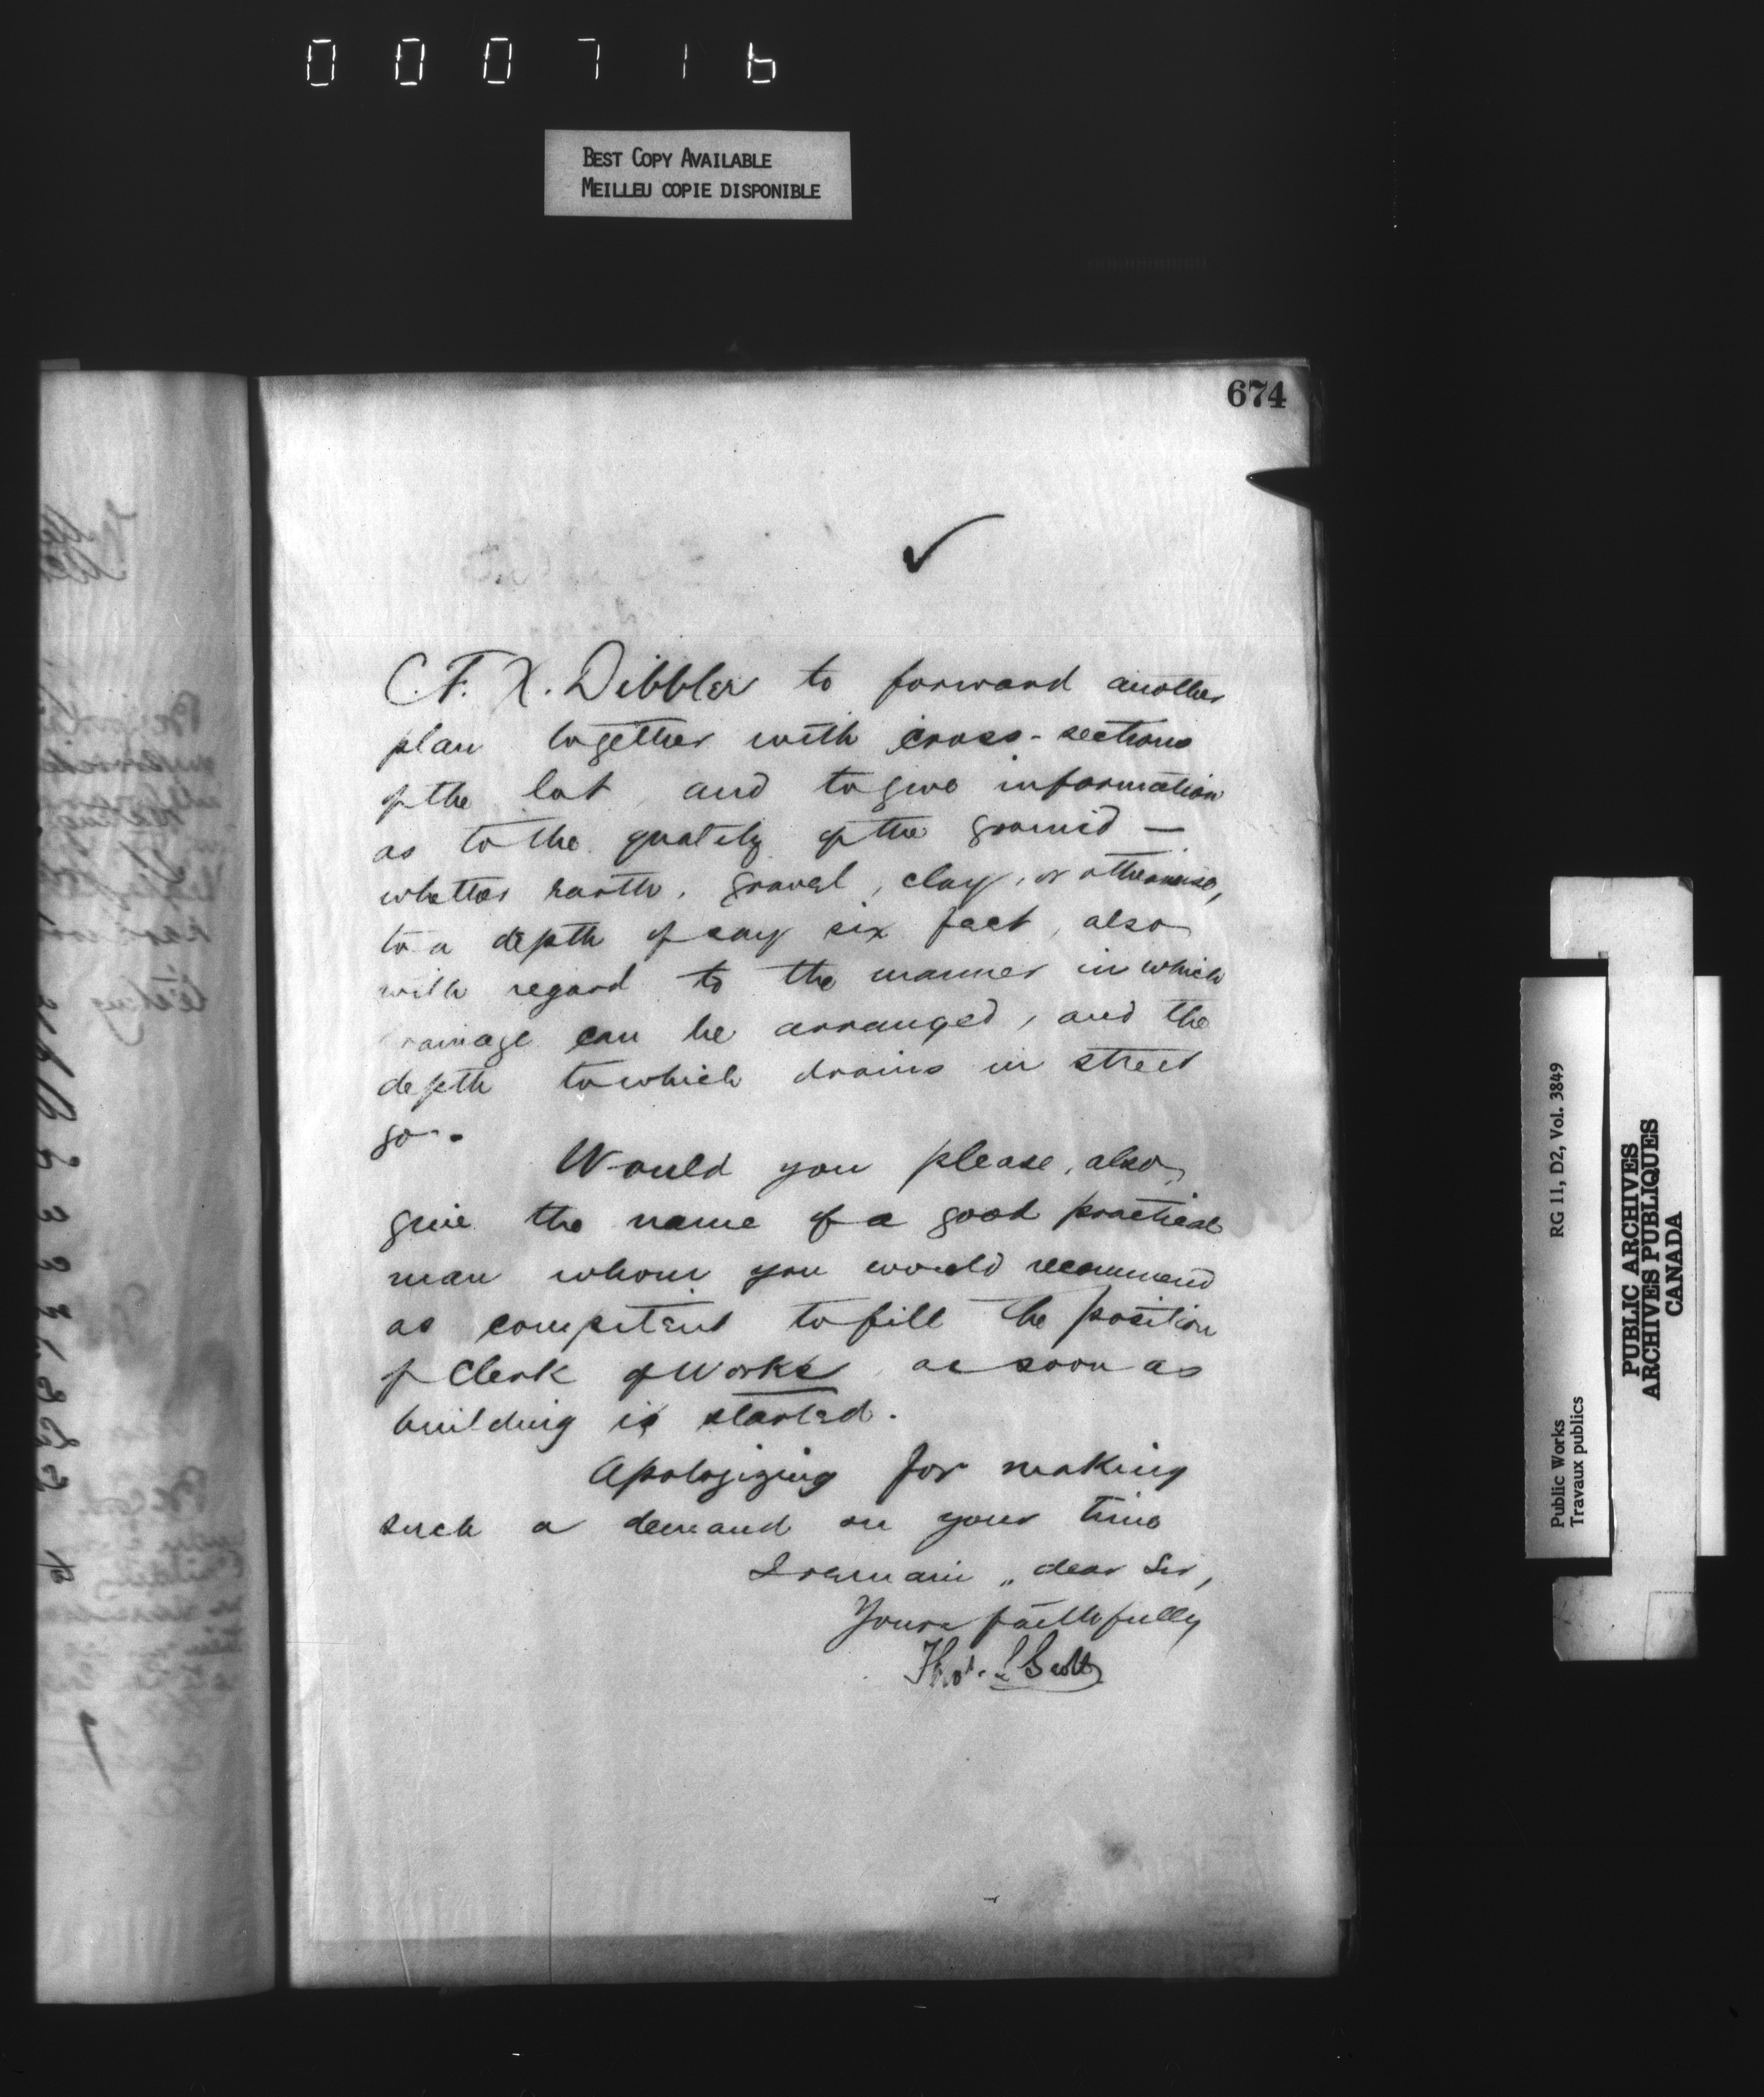 000716
BEST COPY AVAILABLE
MEILLEU COPIE DISPONIBLE
674
C. F. X. Dibbler to forward another
plan together with cross-sections
of the lot, and to give information
as to the quality of the ground —
whether earth, gravel, clay, or otherwise,
to a depth of say six feet, also
with regard to the manner in which
rainage can be arranged, and the
depth to which drains in street
go.
Would you please, also,
give the name of a good practical
man whom you would recommend
as competent to fill the position
of Clerk of Works as soon as
building is started.
Apologizing for making
such a demand on your time
I remain, dear Sir,
Yours faithfully
Thos. S Scott
RG 11, D2, Vol. 3849
Public Works
Travaux publics
PUBLIC ARCHIVES
ARCHIVES PUBLIQUES
CANADA